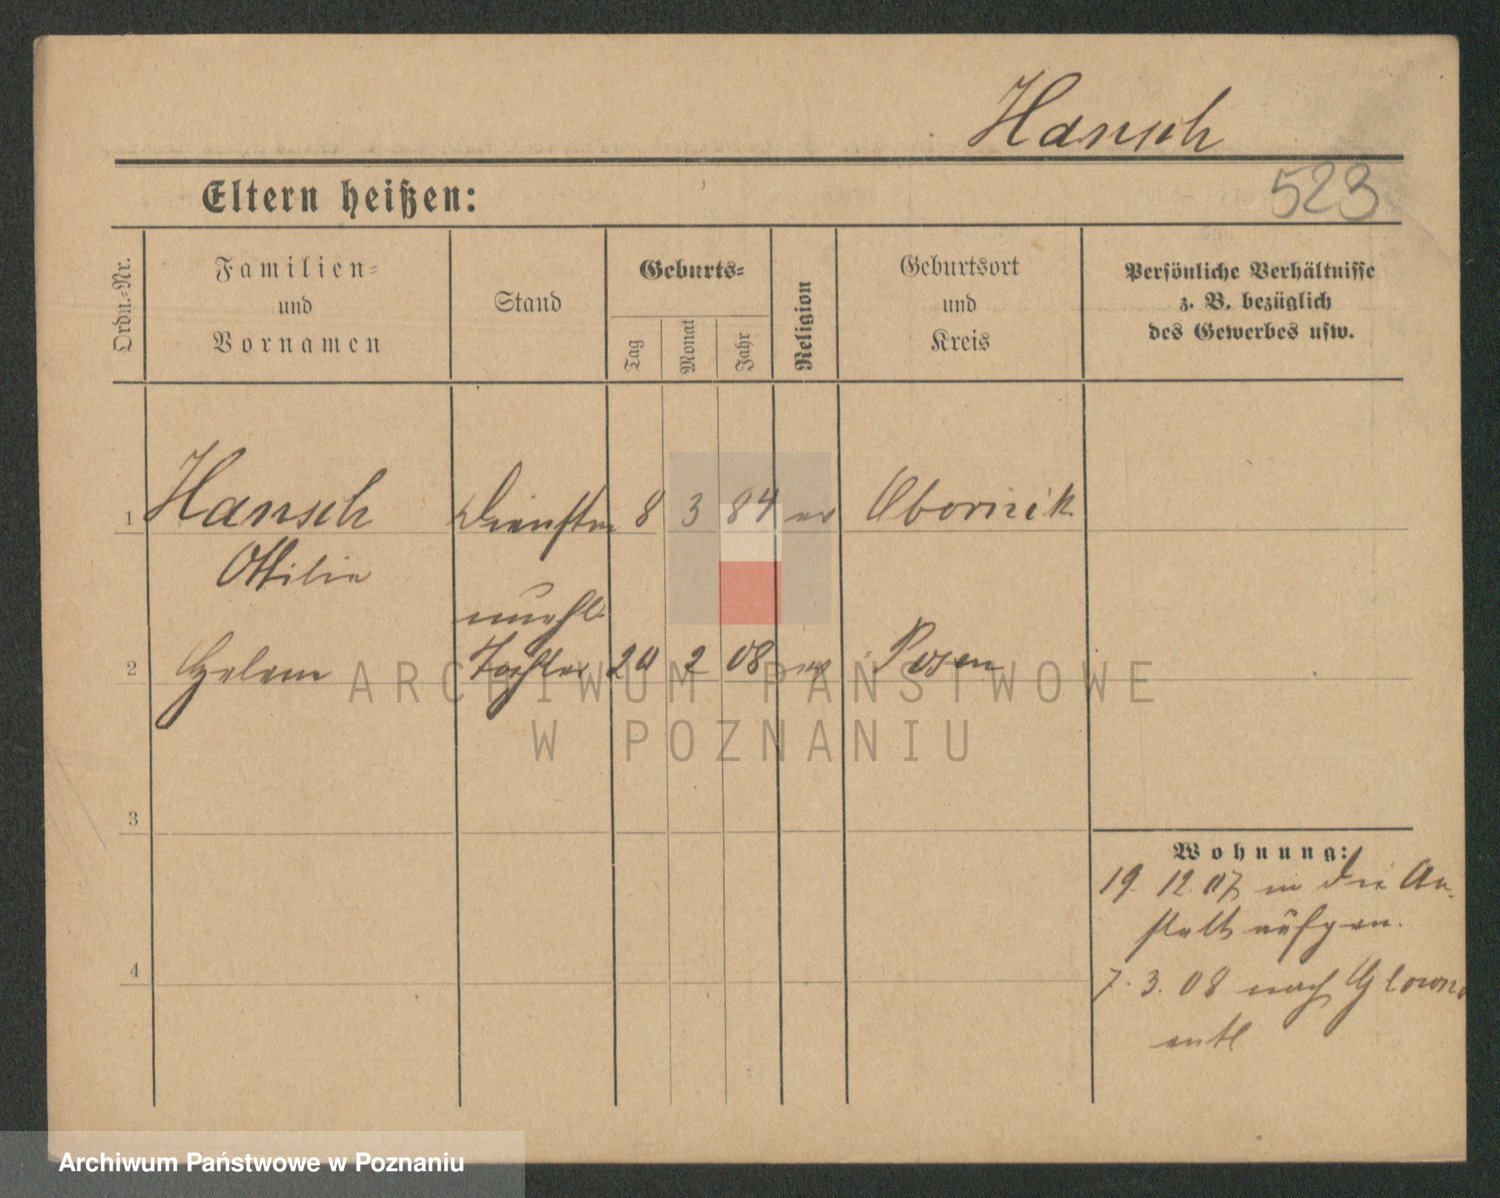 Hansch
Eltern heißen:
523
Ordn.-Nr.
Familien-
und
Vornamen
Stand
Geburts-
Tag
Monat
Jahr
Religion
Geburtsort
und
Kreis
Persönliche Verhältnisse
z. B. bezüglich
des Gewerbes usw.
1 Hansch 8 3 84 ev Obornik
Ottilie
unehl.
2 Helene Tochter 20 2 08 ev Posen
ARCHIWUM PAŃSTWOWE
W POZNANIU
3
Wohnung:
19. 12. 07 in die An-
stalt aufgen.
4
7. 3. 08 nach Glowno
entl
Archiwum Państwowe w Poznaniu